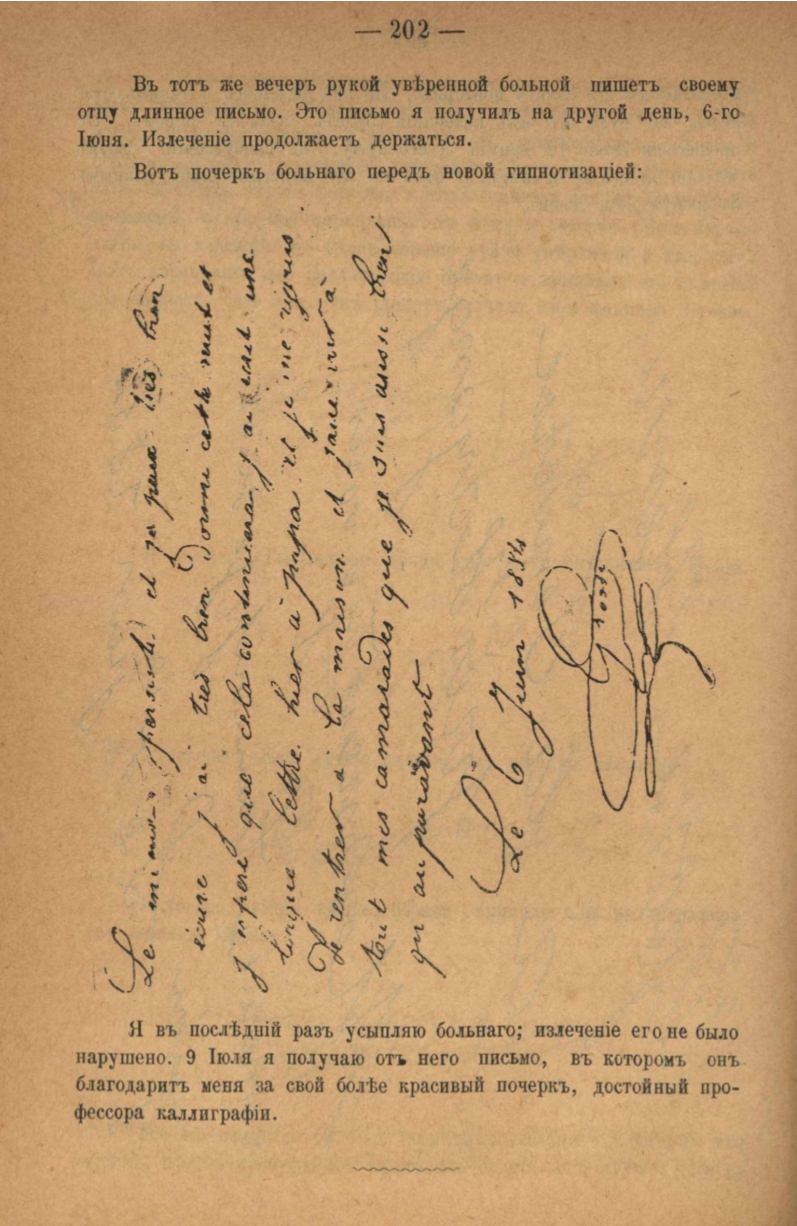 — 202 —
Въ тотъ же вечеръ рукой увѣренной больной пишетъ своему
отцу длинное письмо. Это письмо я получилъ на другой день, 6-го
Іюня. Излеченіе продолжаетъ держаться.
Вотъ почеркъ больнаго передъ новой гипнотизаціей:
Le mieux persiste et je peux très bien
écrire j ai très bien dormi cette nuit et
j espere que cela continuera j ai écrit une
longue lettre hier à papa et je me
de rentrer à la maison et faire voir à
tout mes camarades que je suis aussi bien
qu auparavant
Le 6 Juin 1884
Я въ послѣдній разъ усыпляю больнаго; излеченіе его не было
нарушено. 9 Іюля я получаю отъ него письмо, въ которомъ онъ
благодаритъ меня за свой болѣе красивый почеркъ, достойный про-
фессора каллиграфіи.